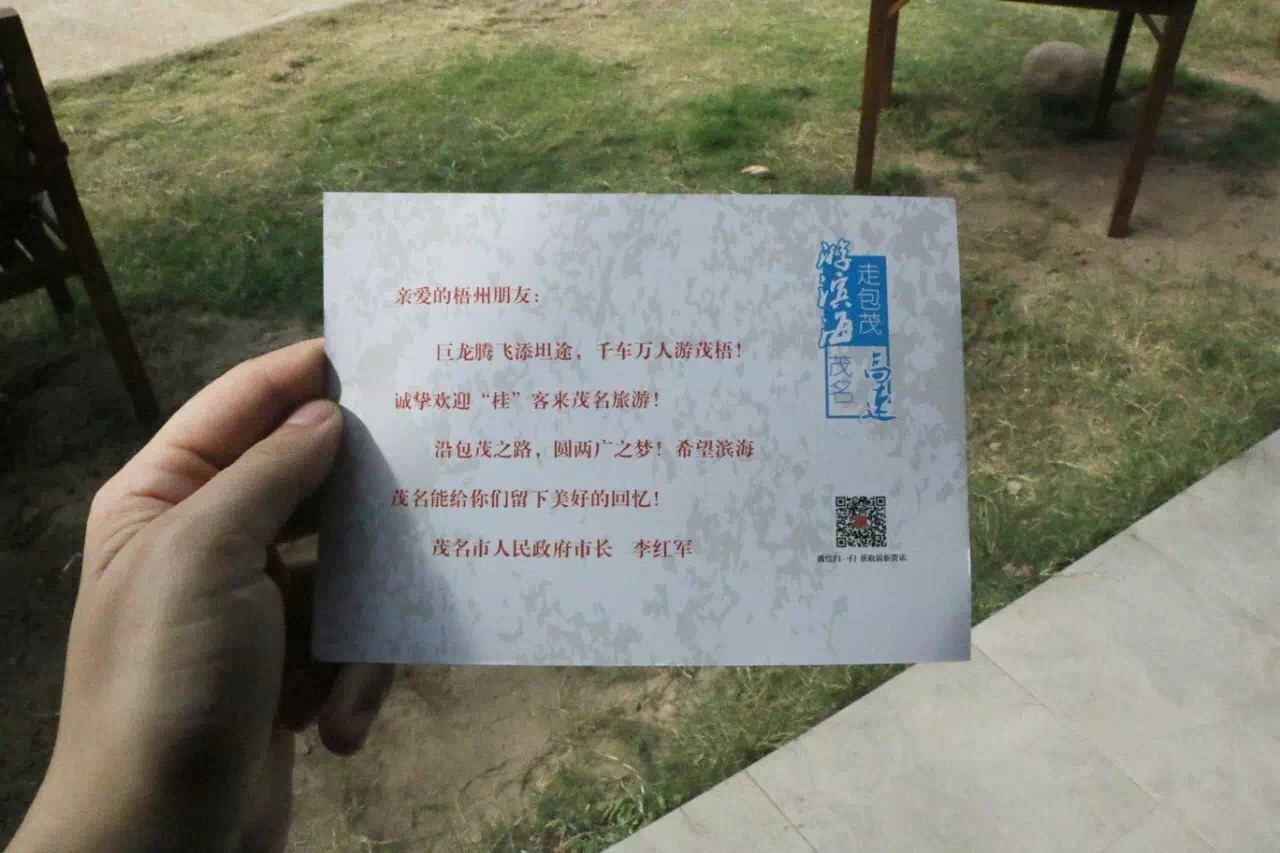 亲爱的梧州朋友：
巨龙腾飞添坦途，千车万人游茂梧！
诚挚欢迎“桂”客来茂名旅游！
沿包茂之路，圆两广之梦！希望滨海
茂名能给你们留下美好的回忆！
茂名市人民政府市长 李红军
走包茂
高速
游滨海
茂名
微信扫一扫 获取最新资讯